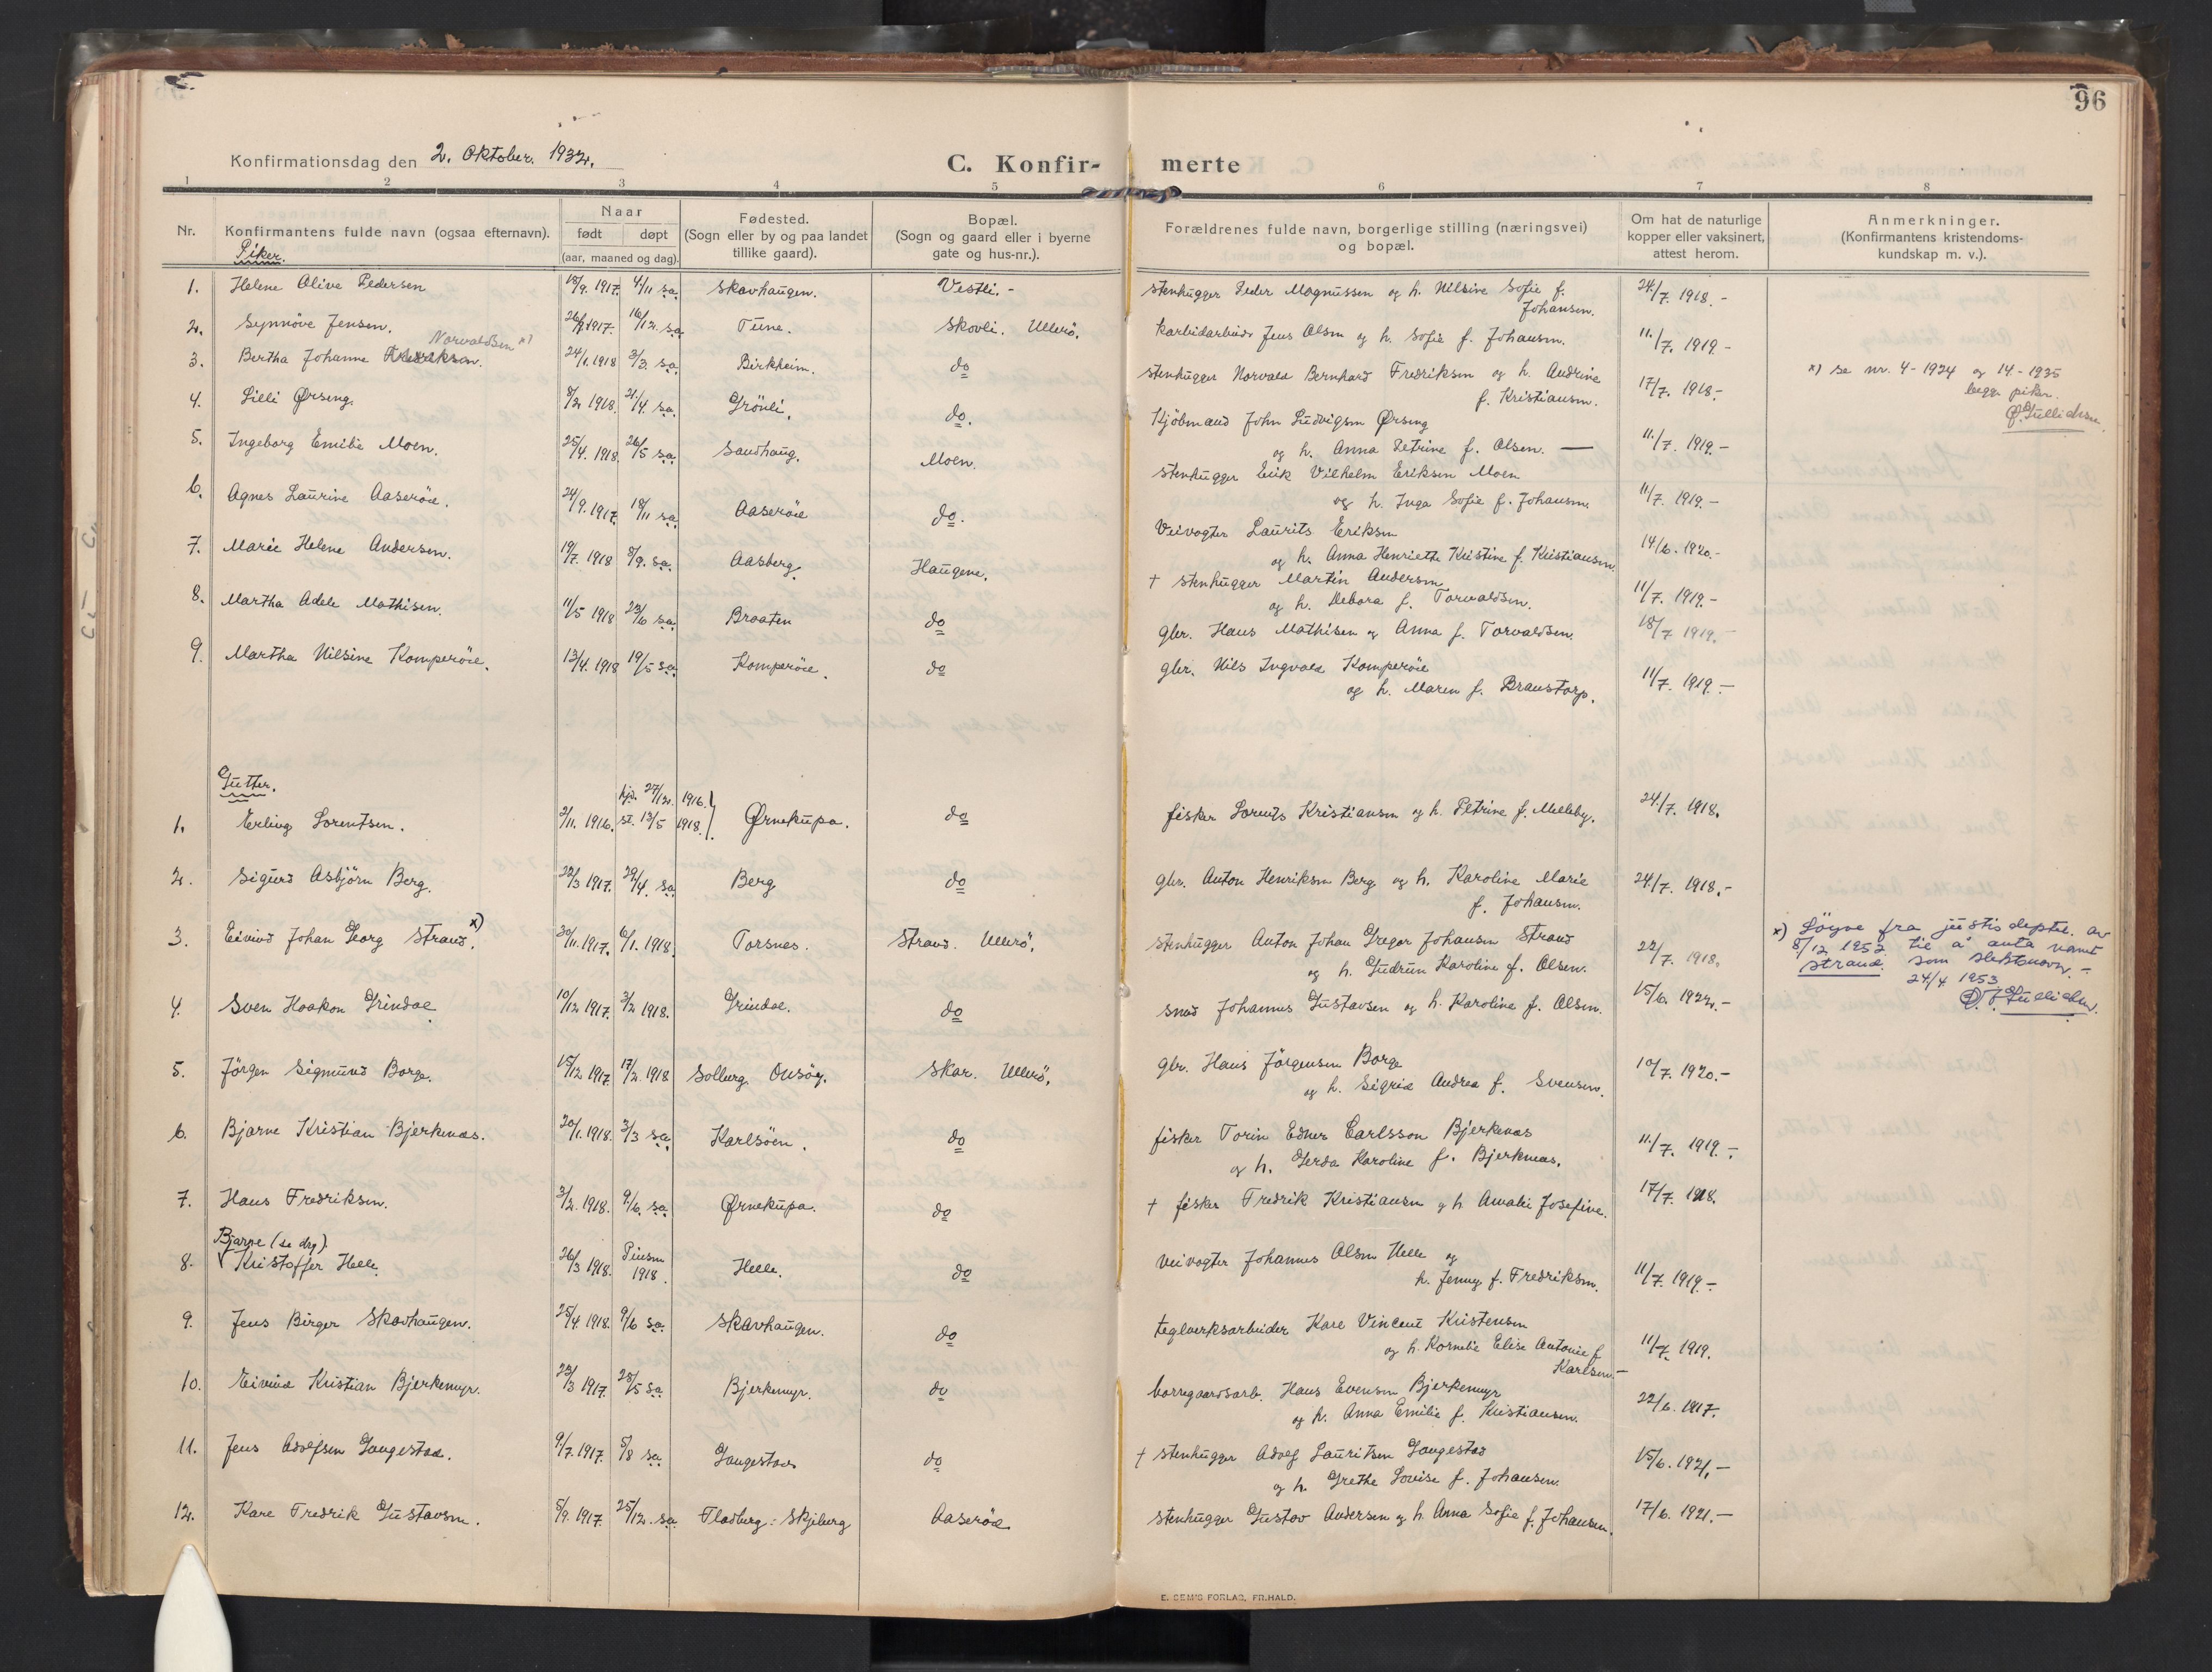 96
Konfirmationsdag den 2. Oktober. 1932.
C. Konfir- merte
1 2 3 4 5 6 7 8
Nr. Konfirmantens fulde navn (ogsaa efternavn). Naar født døpt (aar, maaned og dag). Fødested. (Sogn eller by og paa landet tillike gaard). Bopæl. (Sogn og gaard eller i byerne gate og hus-nr.). Forældrenes fulde navn, borgerlige stilling (næringsvei) og bopæl. Om hat de naturlige kopper eller vaksinert, attest herom. Anmerkninger. (Konfirmantens kristendoms- kundskap m. v.).
Piker.
1. Helene Olive Pedersen 4/11 sa. Skavhaugen. Vestli. - Stenhugger Peder Magnussen og h. Nilsine Sofie f. Johansen. 24/7. 1918. -
2. Synnöve Jensen. 16/12. sa. Tune. Skovli. Ullerö. Karbidarbeider Jens Olsen og h. Sofie f. Johansen. 11/7. 1919. -
Norvaldsen x)
3. Bertha Johanne Fredriksen. 24/1. 1918 3/3. sa. Birkheim. do Stenhugger Norvald Bernhard Fredriksen og h. Andrine f. Kristiansen. 17/7. 1918. - x) se nr. 4 - 1934 og 14 - 1935 begge piker.
4. Lilli Ørsing. 8/2 1918. 21/4. sa. Grönli. do. Kjöbmand John Ludvigsen Ørsing og h. Anna Petrine f. Olsen. — 11/7. 1919. -
5. Ingeborg Emilie Moen. 25/4. 1918. 26/5 sa. Sandhaug. Moen. Stenhugger Erik Vilhelm Eriksen Moen og h. Inga Sofie f. Johansen. 11/7. 1919. -
6. Agnes Laurine Aaseröd. 24/9. 1917. 18/11 sa. Aaseröd do. Veivogter Laurits Eriksen og h. Anna Henriette Kristine f. Kristiansen. 14/6. 1920. -
7. Marie Helene Andersen. 19/7. 1918 8/9. sa. Aasberg. Haugene. † Stenhugger Martin Andersen og h. Debora f. Torvaldsen. 11/7. 1919. -
8. Martha Adele Mathisen. 11/5 1918 23/6 sa. Braaten do gbr. Hans Mathisen og Anna f. Torvaldsen. 18/7 1919. -
9. Martha Nilsine Komperöd. 13/4. 1918 19/5 sa. Komperöd. do gbr. Nils Ingvald Komperöd og h. Maren f. Branstorp. 11/7. 1919. -
Gutter.
1. Erling Lorentsen. 2/11. 1916. hjd. 27/12. 1916. st. 13/5 1918. Ørnekupa. do fisker Lorents Kristiansen og h. Petrine f. Melleby. 24/7. 1918.
2. Sigurd Asbjörn Berg. 22/3 1917. 29/4. sa. Berg do gbr. Anton Henriksen Berg og h. Karoline Marie f. Johansen. 24/7. 1918. -
3. Eivind Johan Georg Strand. x) 30/11. 1917. 6/1. 1918. Torsnes. Strand. Ullerö. Stenhugger Anton Johan Gregor Johansen Strand og h. Gudrun Karoline f. Olsen. 22/7. 1918. x) Löyve fra justisdeptet. av 8/12 1952 til å anta navnet Strand som slektsnavn. - 24/4 1953
4. Sven Haakon Grindal 10/12 1917. 3/2 1918. Grindal. do Johannes Gustavsen og h. Karoline f. Olsen. 15/6. 1922. -
5. Jörgen Sigmund Borge. 15/12 1917 17/2. 1918 Solberg. Onsöy. Skar. Ullerö. gbr. Hans Jörgensen Borge og h. Sigrid Andrea f. Svensen. 10/7. 1920. -
6. Bjarne Kristian Bjerkenæs. 20/1. 1918. 3/3 sa. Karlsöen. do fisker Torin Edner Carlsson Bjerkenæs og h. Gerda Karoline f. Bjerknæs. 11/7. 1919. -
7. Hans Fredriksen. 3/2. 1918. 9/6. sa. Ørnekupa. do † fisker Fredrik Kristiansen og h. Amalie Josefine. 17/7. 1918.
Bjarne (se drg).
8. Kristoffer Helle. 26/3 1918. Pinsen 1918. Helle. do Veivogter Johannes Olsen Helle og h. Jenny f. Fredriksen. 11/7. 1919. -
9. Jens Birger Skavhaugen. 25/4 1918. 9/6 sa. Skavhaugen. do teglverksarbeider Kare Vincent Kristensen og h. Kornelie Elise Antonie f. Karlsen. - 11/7. 1919.
10. Eivind Kristian Bjerkemyr. 23/3 1917. 28/5 sa. Bjerkemyr. do borregaardsarb. Hans Evensen Bjerkemyr og h. Anna Emilie f. Kristiansen. 22/6. 1917.
11. Jens Adolfsen Gaugestad. 9/7. 1917. 5/8 sa. Gaugestad do † Stenhugger Adolf Lauritsen Gaugestad og h. Grethe Lovise f. Johansen. 15/6. 1921. -
12. Kare Fredrik Gustavsen. 5/9. 1917. 25/12. sa. Fladberg: Skjeberg Aaseröd Stenhugger Gustav Andersen og h. Anna Sofie f. Johansen. 17/6. 1921. -
E. SEM'S FORLAG, FR.HALD.